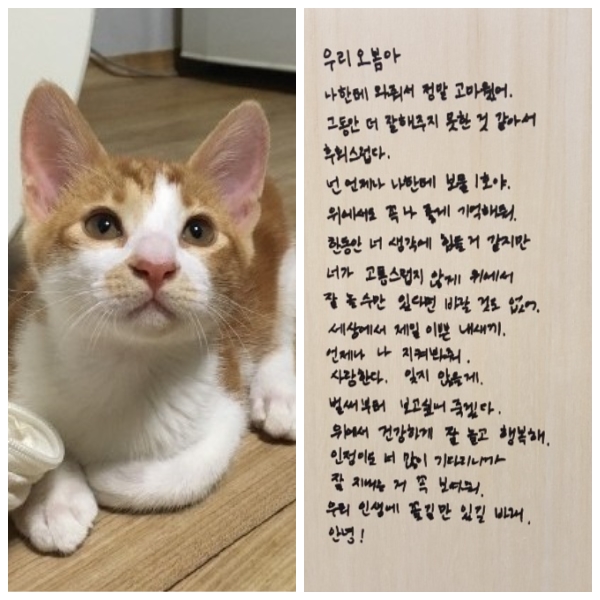 우리 오봄아
나한테 와줘서 정말 고마웠어.
그동안 더 잘해주지 못한 것 같아서
후회스럽다.
넌 언제나 나한테 보물 1호야.
위에서도 꼭 나 좋게 기억해줘.
한동안 너 생각에 힘들거 같지만
너가 고통스럽지 않게 위에서
잘 놀수만 있다면 바랄 것도 없어.
세상에서 제일 이쁜 내새끼.
언제나 나 지켜봐줘.
사랑한다. 잊지 않을게.
벌써부터 보고싶어 죽겠다.
위에서 건강하게 잘 놀고 행복해.
인정이도 너 많이 기다리니까
잘 지내는 거 꼭 보여줘.
우리 인생에 꽃길만 있길 바래.
안녕!